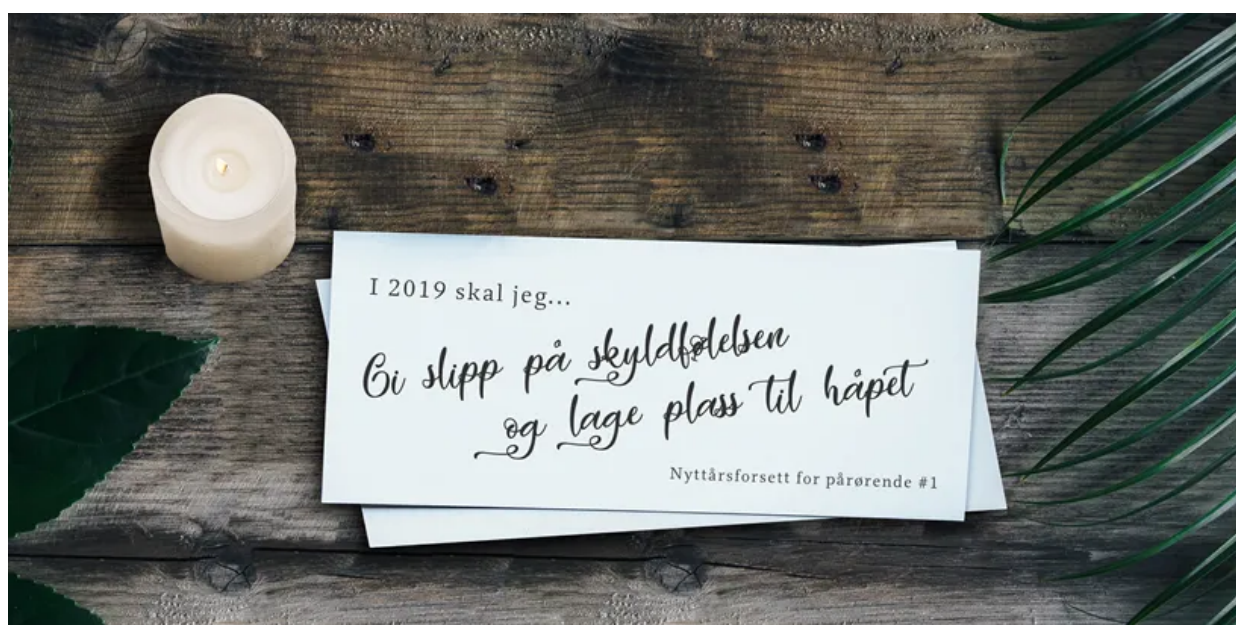 I 2019 skal jeg...
Gi slipp på skyldfølelsen
og lage plass til håpet
Nyttårsforsett for pårørende #1